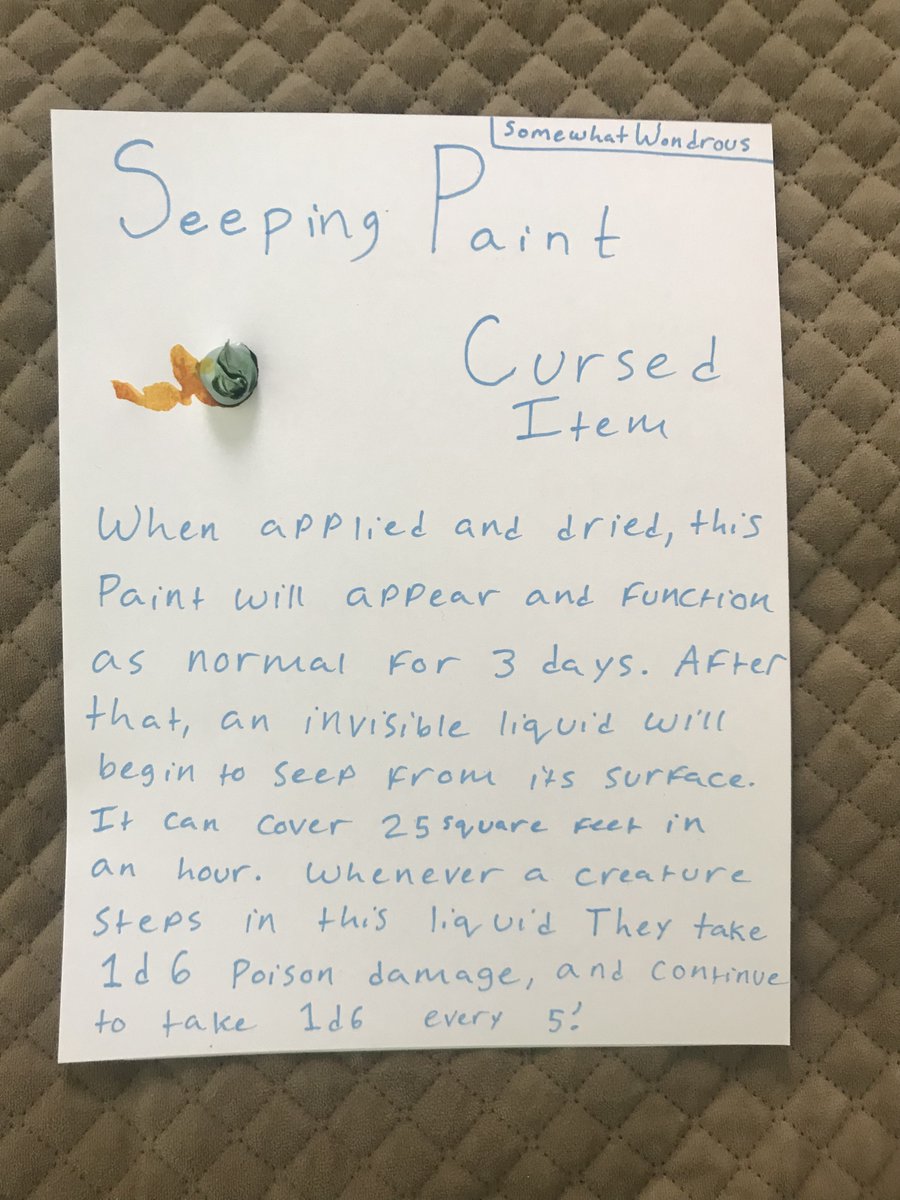 Somewhat Wondrous
Seeping Paint
Cursed
Item
When applied and dried, this
Paint will appear and function
as normal for 3 days. After
that, an invisible liquid will
begin to seep from its surface.
It can cover 25 square feet in
an hour. Whenever a creature
steps in this liquid They take
1d6 Poison damage, and continue
to take 1d6 every 5'.